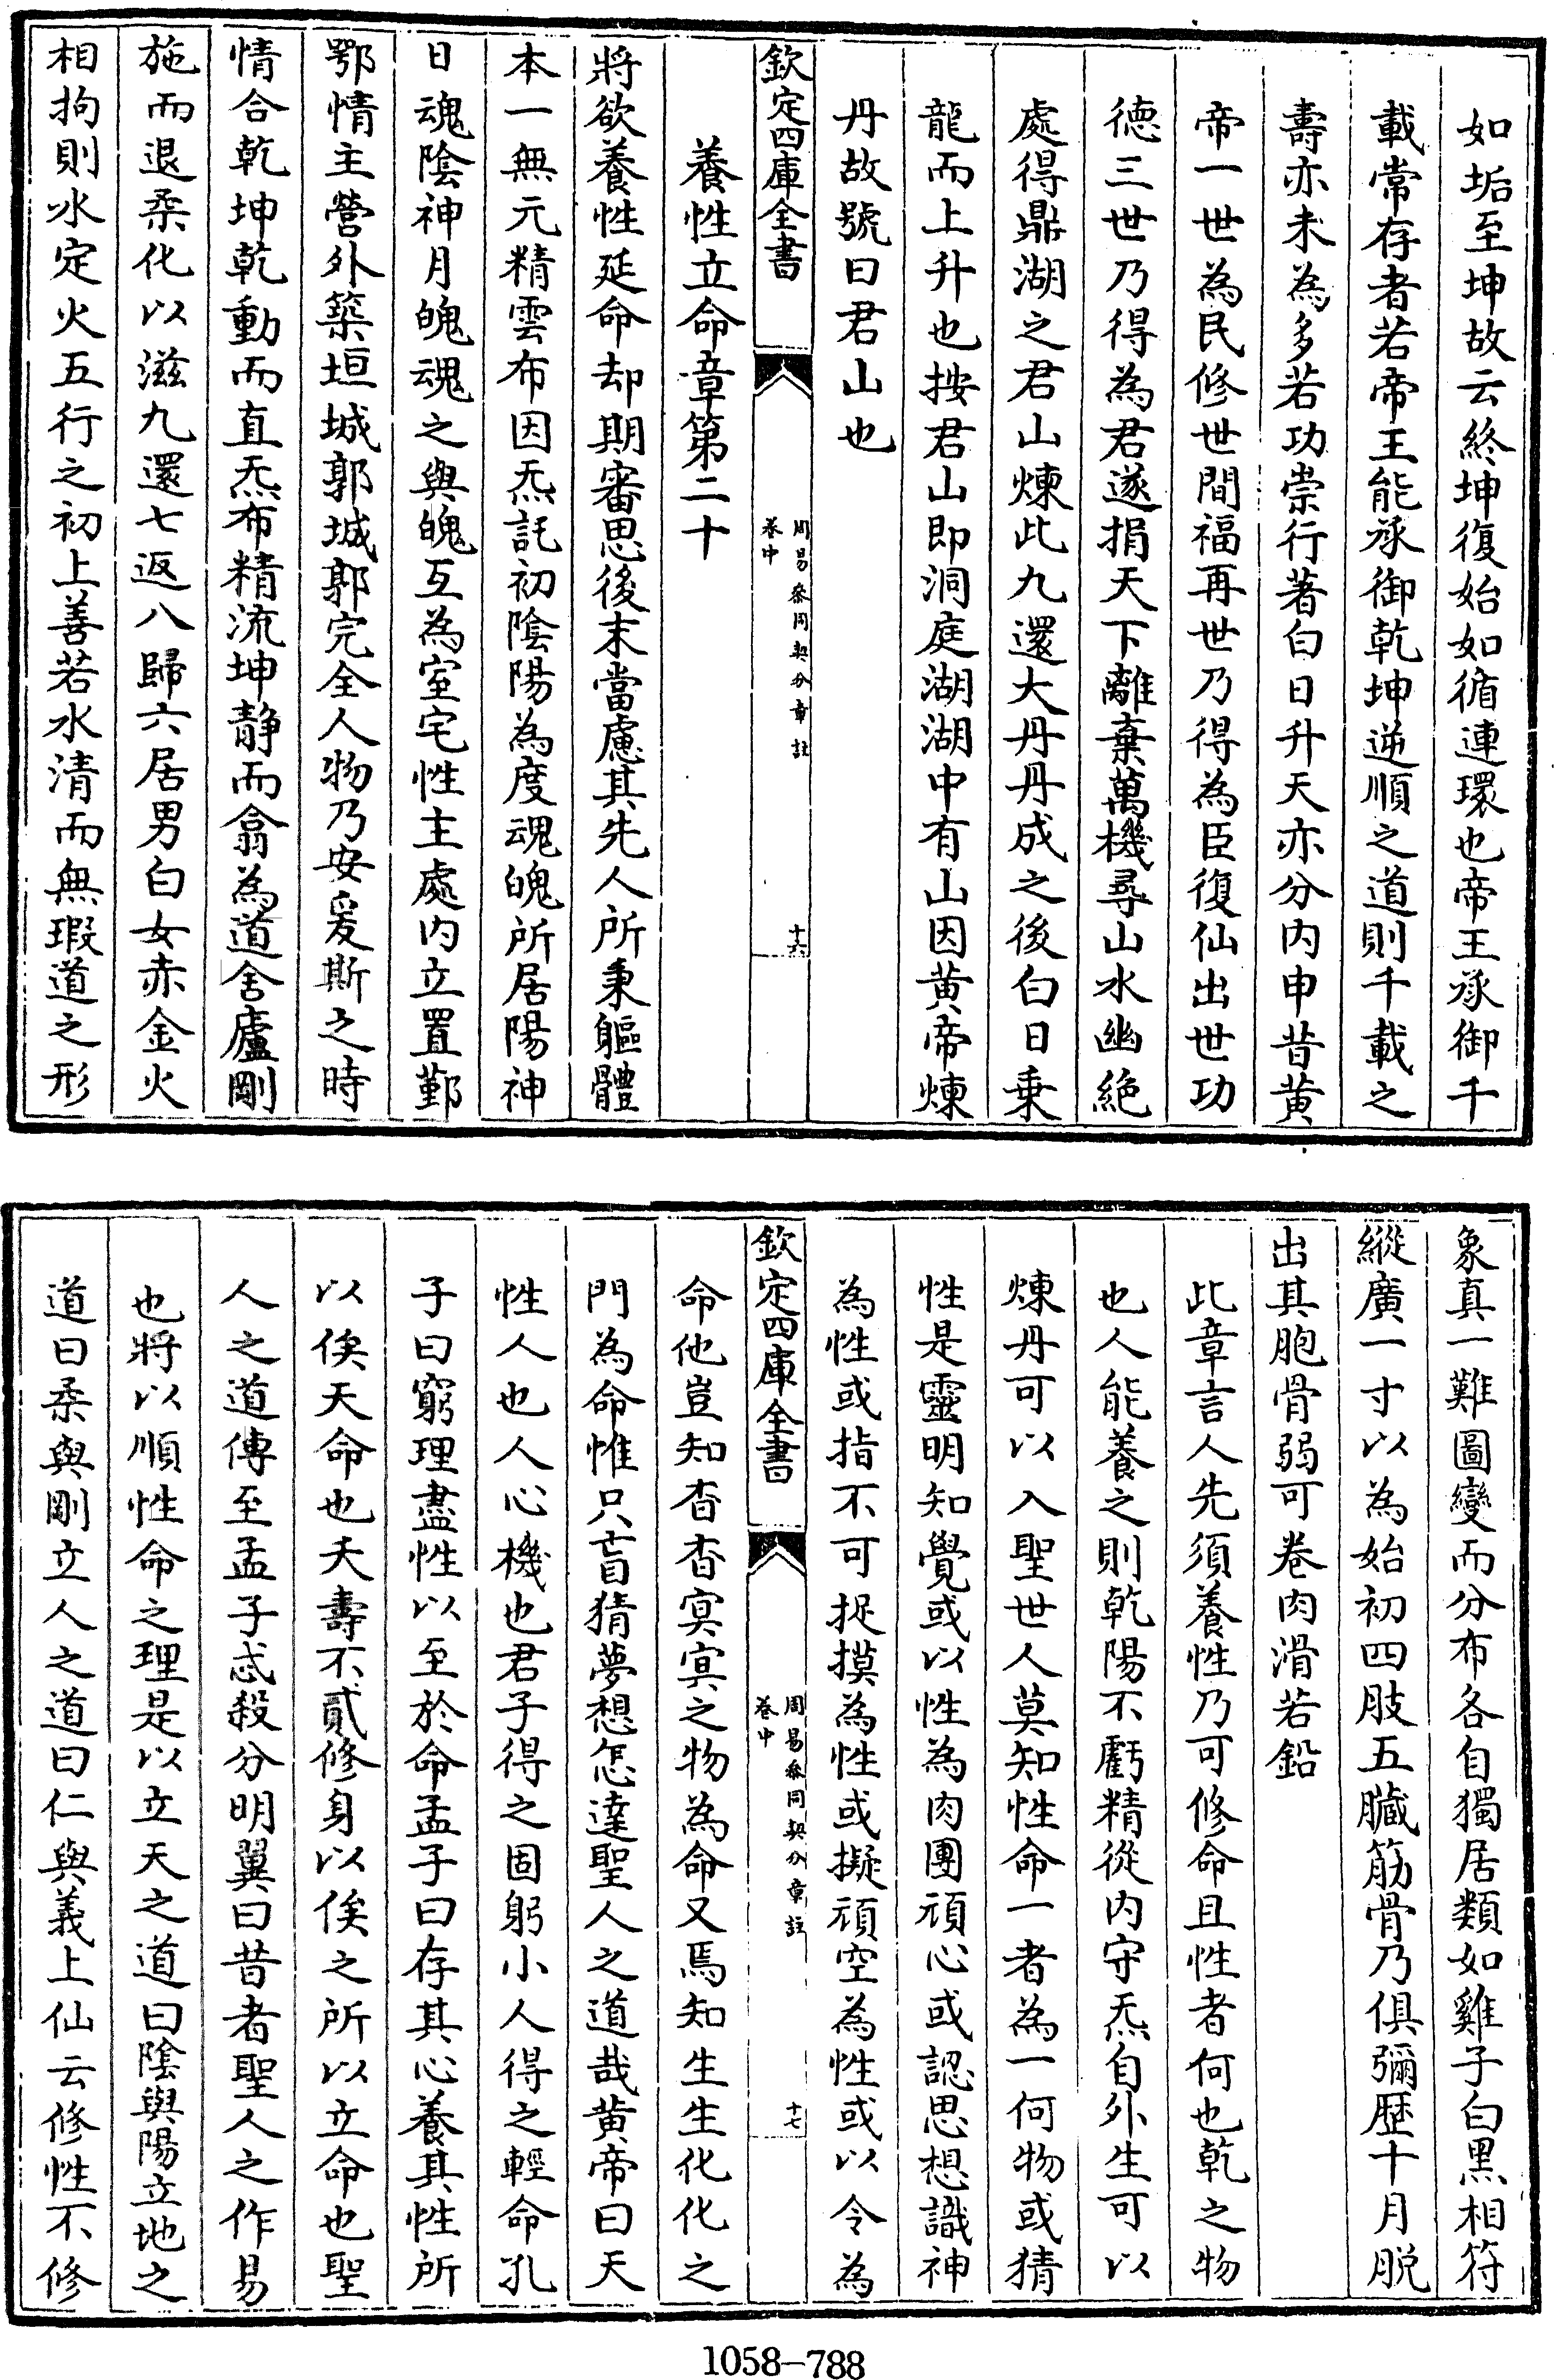 如垢至坤故云終坤復始如循連環也帝王承御千
載常存者若帝王能承御乾坤逆順之道則千載之
壽亦未為多若功崇行著白日升天亦分内申昔黃
帝一世為民修世間福再世乃得為臣復仙出世功
德三世乃得為君遂捐天下離棄萬機尋山水幽絶
處得鼎湖之君山煉此九還大丹丹成之後白日乗
龍而上升也按君山即洞庭湖湖中有山因黃帝煉
丹故號曰君山也
欽定四庫全書
周易參同契分章註
卷中
十六
養性立命章第二十
將欲養性延命却期審思後末當慮其先人所秉軀體
本一無元精雲布因炁託初陰陽為度魂魄所居陽神
日魂陰神月魄魂之與魄互為室宅性主處内立置鄞
鄂情主營外築垣城郭城郭完全人物乃安爰斯之時
情合乾坤乾動而直炁布精流坤静而翕為道舍廬剛
施而退柔化以滋九還七返八歸六居男白女赤金火
相拘則水定火五行之初上善若水清而無瑕道之形
象真一難圖變而分布各自獨居類如雞子白黒相符
縱廣一寸以為始初四肢五臟筋骨乃俱彌歴十月脱
出其胞骨弱可卷肉滑若鉛
此章言人先須養性乃可修命且性者何也乾之物
也人能養之則乾陽不虧精從内守炁自外生可以
煉丹可以入聖世人莫知性命一者為一何物或猜
性是靈明知覺或以性為肉團頑心或認思想識神
為性或指不可捉摸為性或擬頑空為性或以令為
欽定四庫全書
周易參同契分章註
卷中
十七
命他豈知杳杳冥冥之物為命又焉知生生化化之
門為命惟只盲猜夢想怎達聖人之道哉黃帝曰天
性人也人心機也君子得之固躬小人得之輕命孔
子曰窮理盡性以至於命孟子曰存其心養其性所
以俟天命也夭壽不貳修身以俟之所以立命也聖
人之道傳至孟子忒殺分明翼曰昔者聖人之作易
也將以順性命之理是以立天之道曰陰與陽立地之
道曰柔與剛立人之道曰仁與義上仙云修性不修
1058-788